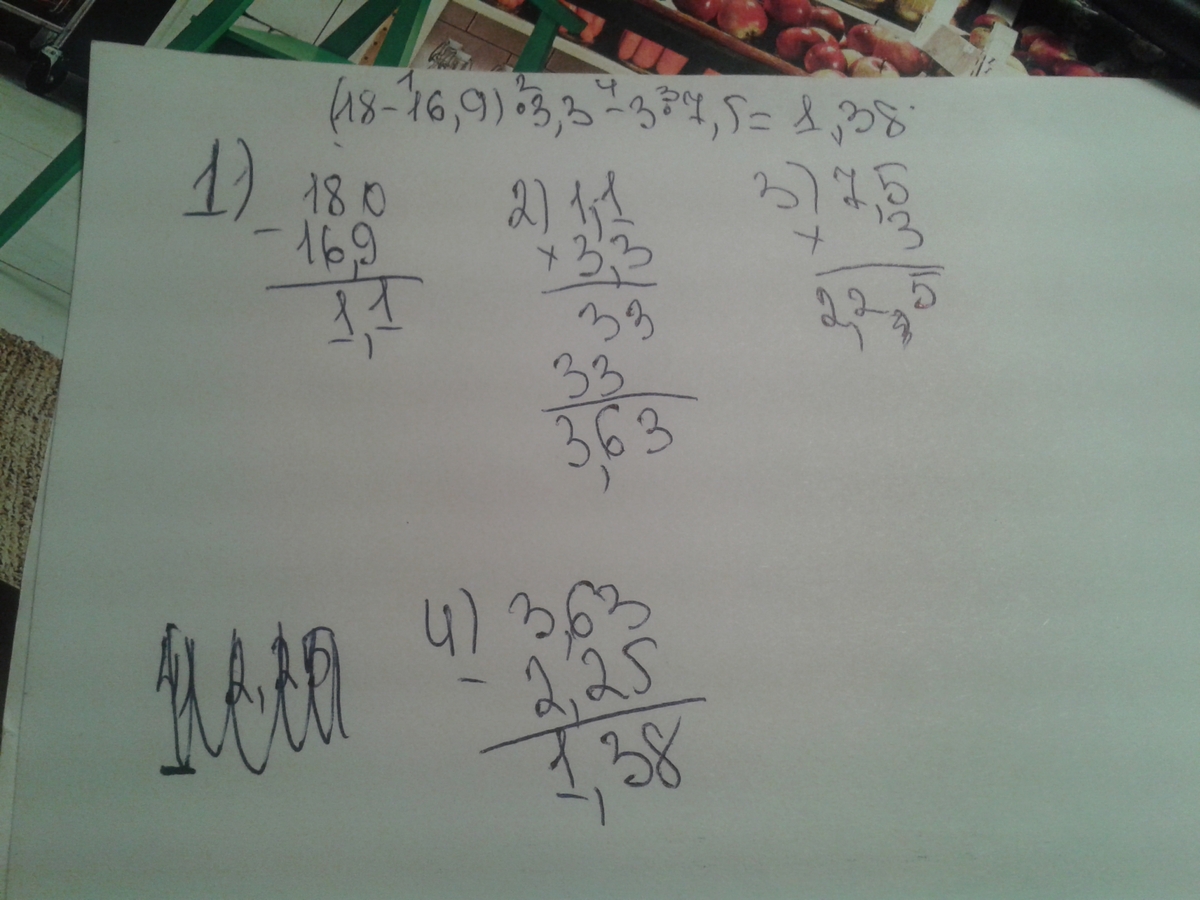 (18-16,9)·3,3-3·7,5=1,38
1) 180
- 16,9
1,1
2) 1,1
× 3,3
33
33
3,63
3) 7,5
× 3
2,2,5
4) 3,63
- 2,25
1,38